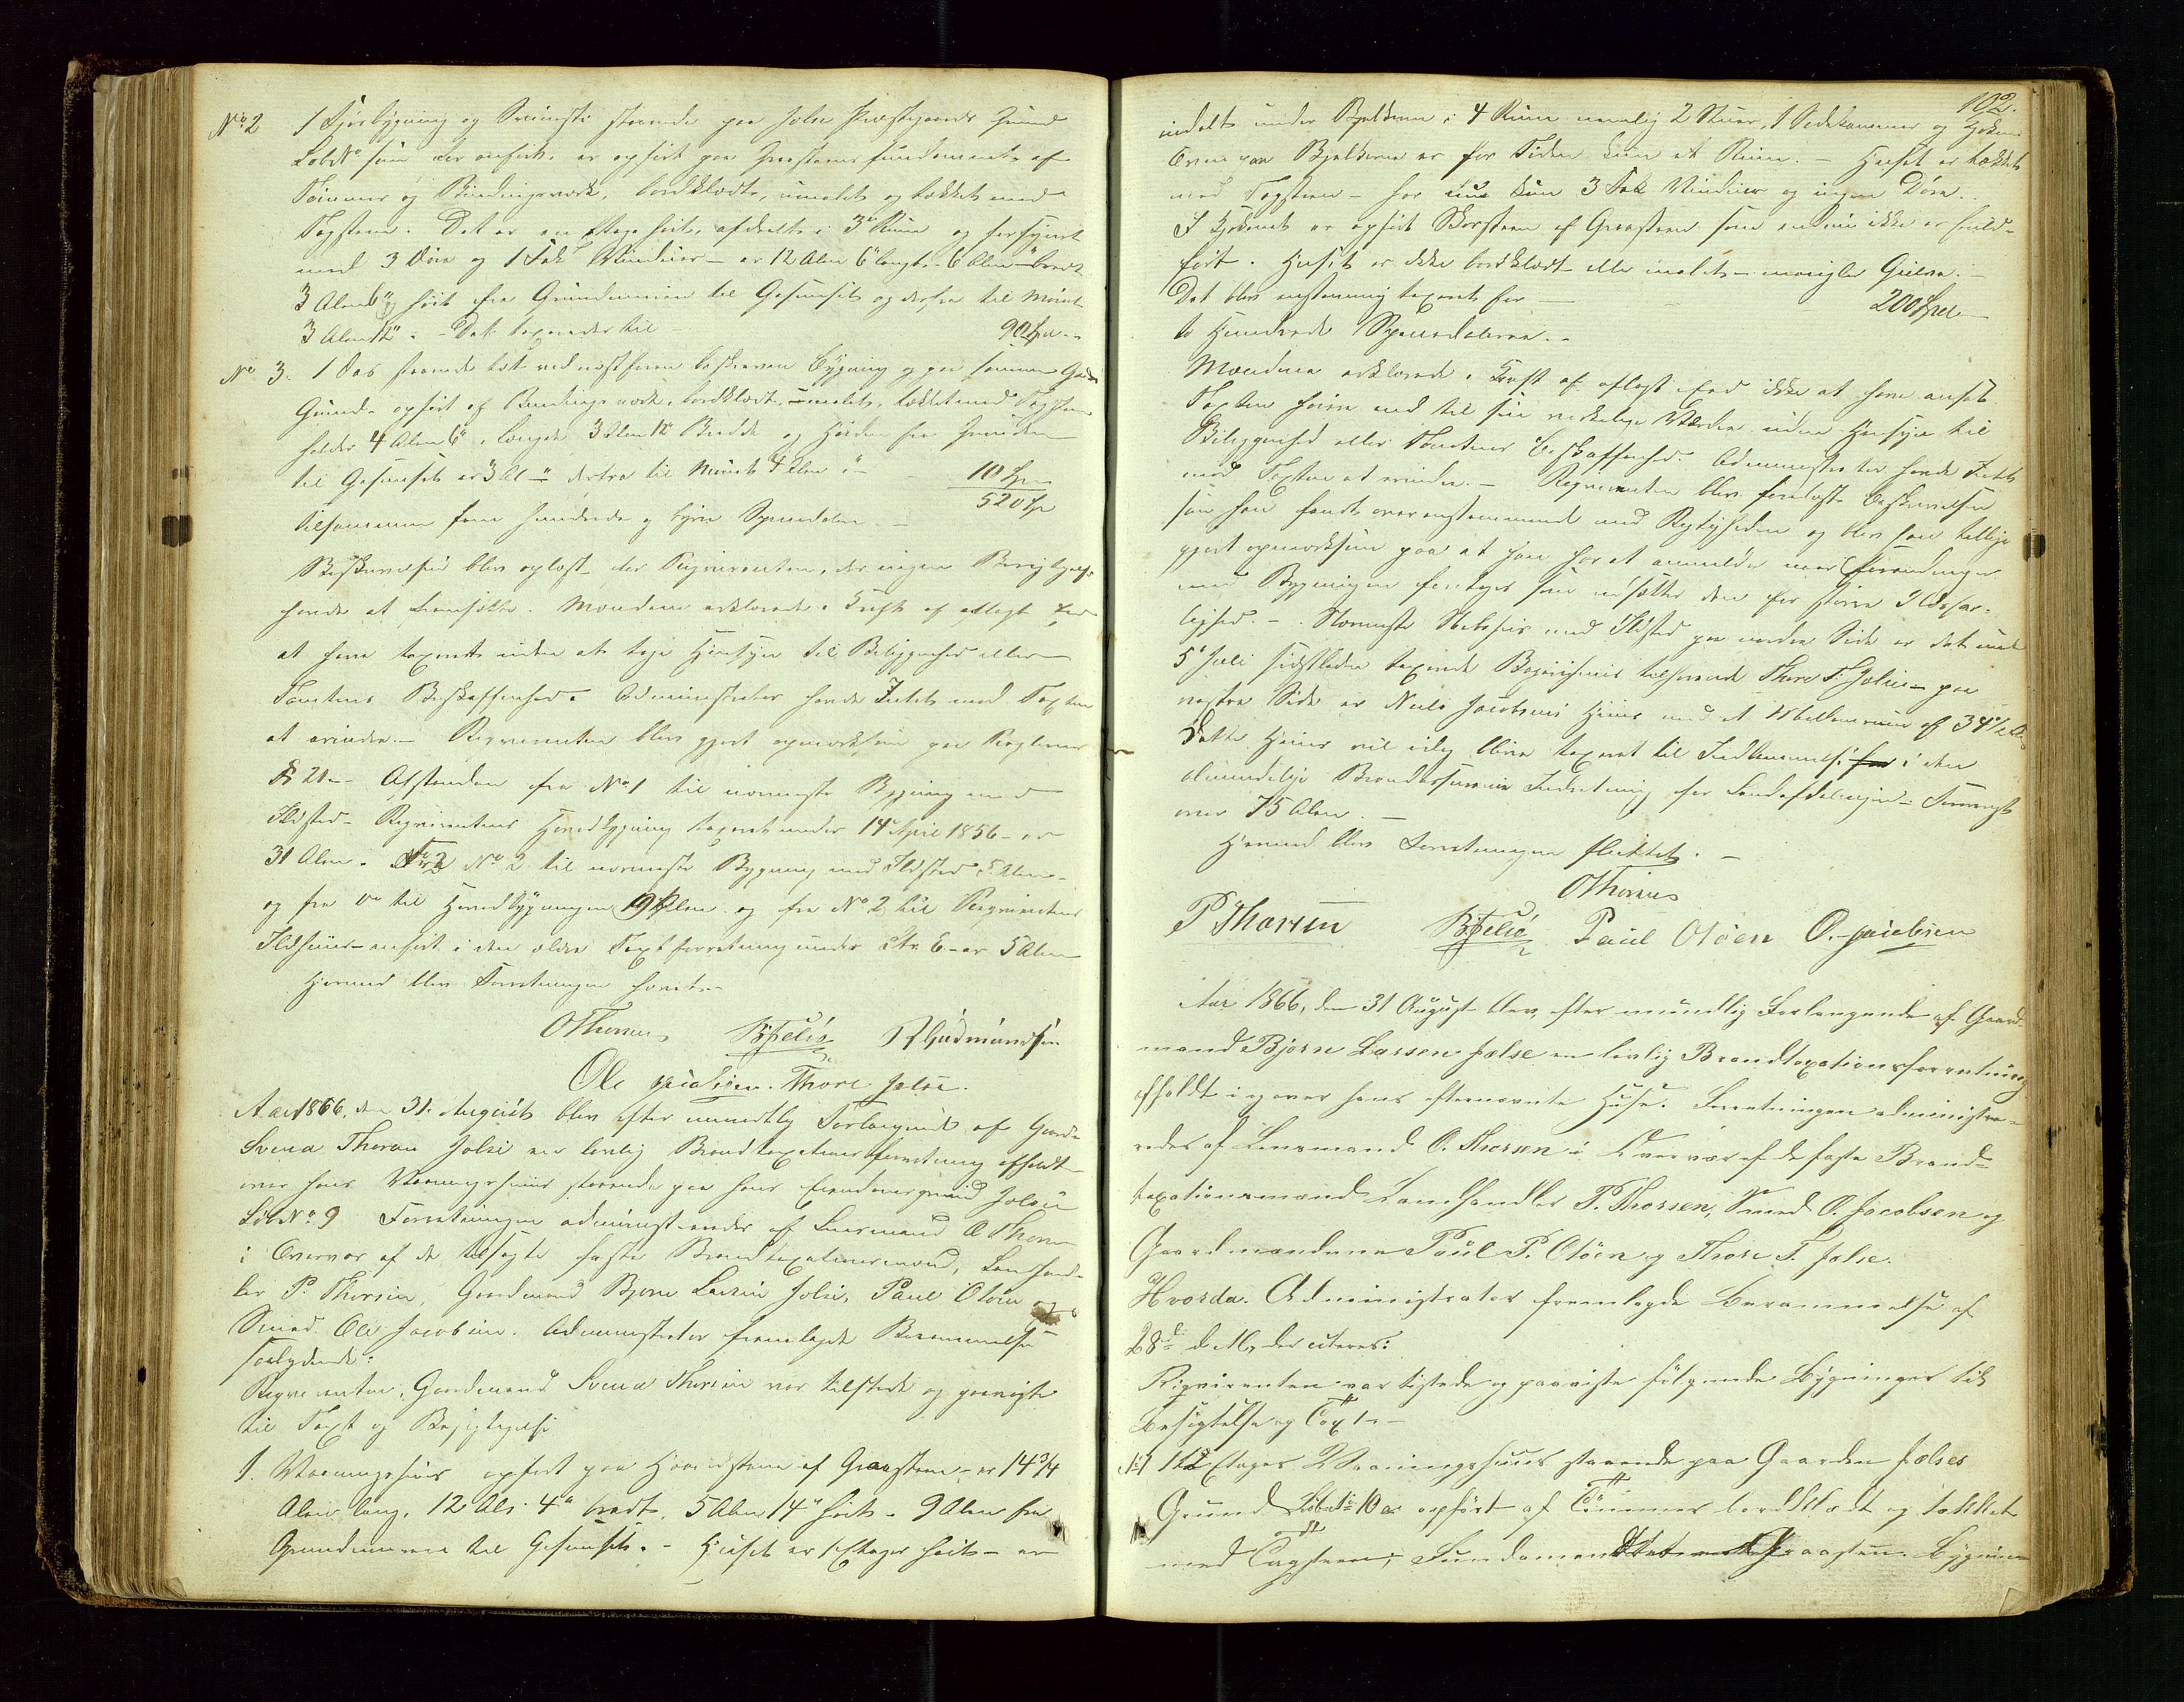 No 2 1 Fjøsbygning og Sviinesti staaende paa Jelse Præstegaards Grund
LøbeNo som før anført, er opført paa Graasteens fundament af
Tømmer og Bindingsværk, bordklædt, umalet og tækket med
Tagsteen. Det er en Etage høit, afdeelt i 3de Rum og forsynet
med 3 Døre og 1 Fak Vinduer – er 12 Alen 6" langt, 6 Alen –" bredt
3 Alen 6" høit fra Grundmuren til Gesimset og derfra til Mønet
3 Alen 12". – Det taxeredes til – 90 Spd. –
No 3. 1 Das staaende tæt ved næstforan beskreven Bygning og paa samme
Grund – opført af Bindingsværk, bordklædt, umalet, tækket med Tagsteen
holder 4 Alen 6" i Længde 3 Alen 12" Bredde og Høiden fra Grunden
til Gesimset er 3 Al –" derfra til Mønet 4 Alen –" – 10 Sp –
520 Sp
tilsammen fem hundrede og tyve Speciedaler –
Beskrivelsen blev oplæst for Reqvirenten, der ingen
havde at fremsætte. Mændene erklærede i Kraft af aflagt Eed
at have taxeret uden at tage Hensyn til Beliggenhed eller
Tomtens Beskaffenhed. Administrator havde Intet mod Taxten
at erindre. – Reqvirenten blev gjort opmærksom paa Reglerne
§ 21 – Afstanden fra No 1 til nærmeste Bygning med
Ildsted – Reqvirentens Hovedbygning taxeret under 14de April 1856 – er
31 Alen. No 2 til nærmeste Bygning med Ildsted 5 Alen –
og fra do til Hovedbygningen 19 Alen og fra No 2 til Reqvirentens
Ildhuus – anført i den ældre Taxtforretning under Ltr E – er 5 Alen
Hermed blev Forretningen hævet. –
OThorsen
Ole Jacobsen. Thore Jelse.
Aar 1866, den 31. August blev efter mundtlig Forlangende af Gaardm
Svend Thorsen Jelse en lovlig Brandtaxationsforretning afholdt
over hans Vaaningshuus staaende paa hans Eiendomsgrund Jelse
LøbNo 9 Forretningen administreredes af Lensmand O Thorsen
i Overvær af de tilsagte faste Brandtaxationsmænd, Landhand-
ler P. Thorsen, Gaardmand Bjørn Larsen Jelse, Paul Otøen og
Smed Ole Jacobsen. Administrator fremlagde Berammelse
saalydende:
Reqvirenten, Gaardmand Svend Thorsen var tilstede og paaviste
til Taxt og Besigtigelse
1. Vaaningshuus opført paa af Graasteen – er 14 3/4
Alen lang, 12 Al. 4" bredt, 5 Alen 14" høit – 9 Alen fra
Grundmuren til Gesimset. – Huset er 1 Etage høit – er
102.
indelt under Bjelkerne i 4 Rum nemlig 2 Stuer, 1 Sidekammer og Kjøkken
Oven paa Bjelkerne er for Tiden kun et Rum. – Huset er tækket
med Tagsteen – har kun 3 Fak Vinduer og ingen Døre.
I Kjøkkenet er opført Skorsteen af Graasteen som endnu ikke er fuld-
ført. Huset er ikke bordklædt eller malet – mangler Gulve. –
Det blev enstemmig taxeret for – 200 Spd –
to Hundrede Speciedalere. –
Mændene erklærede i Kraft af aflagt Eed ikke at have ansat
Taxten høiere end til sin virkelige Værdie uden Hensyn til
Beliggenhed eller Tomtens Beskaffenhed Administrator havde Intet
mod Taxten at erindre. – Reqvirenten blev forelæst Beskrivelsen
som han fandt overensstemmende med Rigtigheden og blev han tillige
gjort opmærksom paa at han har at anmelde naar Forandringer
med Bygningen foretages som udsætter den for større Ildsfar-
lighed. – Nærmeste Nabohuus med Ildsted paa nordre Side er det under
5te Juli sidstleden taxerede tilhørende Thore T. Jelse – paa
vestre Side er Niels Jacobsens Huus med et Mellemrum af 34 1/2 Al.
Dette Huus vil idag blive taxeret til Indlemmelse i den
almindelige Brandforsikrings Indretning for Landafdelingen – Forresten
over 75 Alen. –
Hermed blev Forretningen sluttet. –
OThorsen
P Thorsen Paul Otöen O. Jacobsen
Aar 1866, den 31 August blev, efter mundtlig Forlangende af Gaard-
mand Bjørn Larsen Jælse en lovlig Brandtaxationsforretning
afholdt i og over hans efternævnte Huse. Forretningen administre-
redes af Lensmand O. Thorsen i Overvær af de faste Brand-
taxationsmænd Landhandler P. Thorsen, Smed O. Jacobsen og
Gaardmændene Paul P. Otöen og Thore T. Jelse.
Hvorda. Administrator fremlagde Berammelse af
28de d. M., der citeres:
Riqvirenten var tistede og paaviste fölgende Bygninger til
Besigtelse og Taxt. –
No 1 1 1/2 Etages Vaaningshuus staaende paa Gaarden Jælses
Grund Löbe No 10 a opfört af Tömmer bordklædt og tækket
med Tagsteen; Fundamentet Graasten. Bygnin